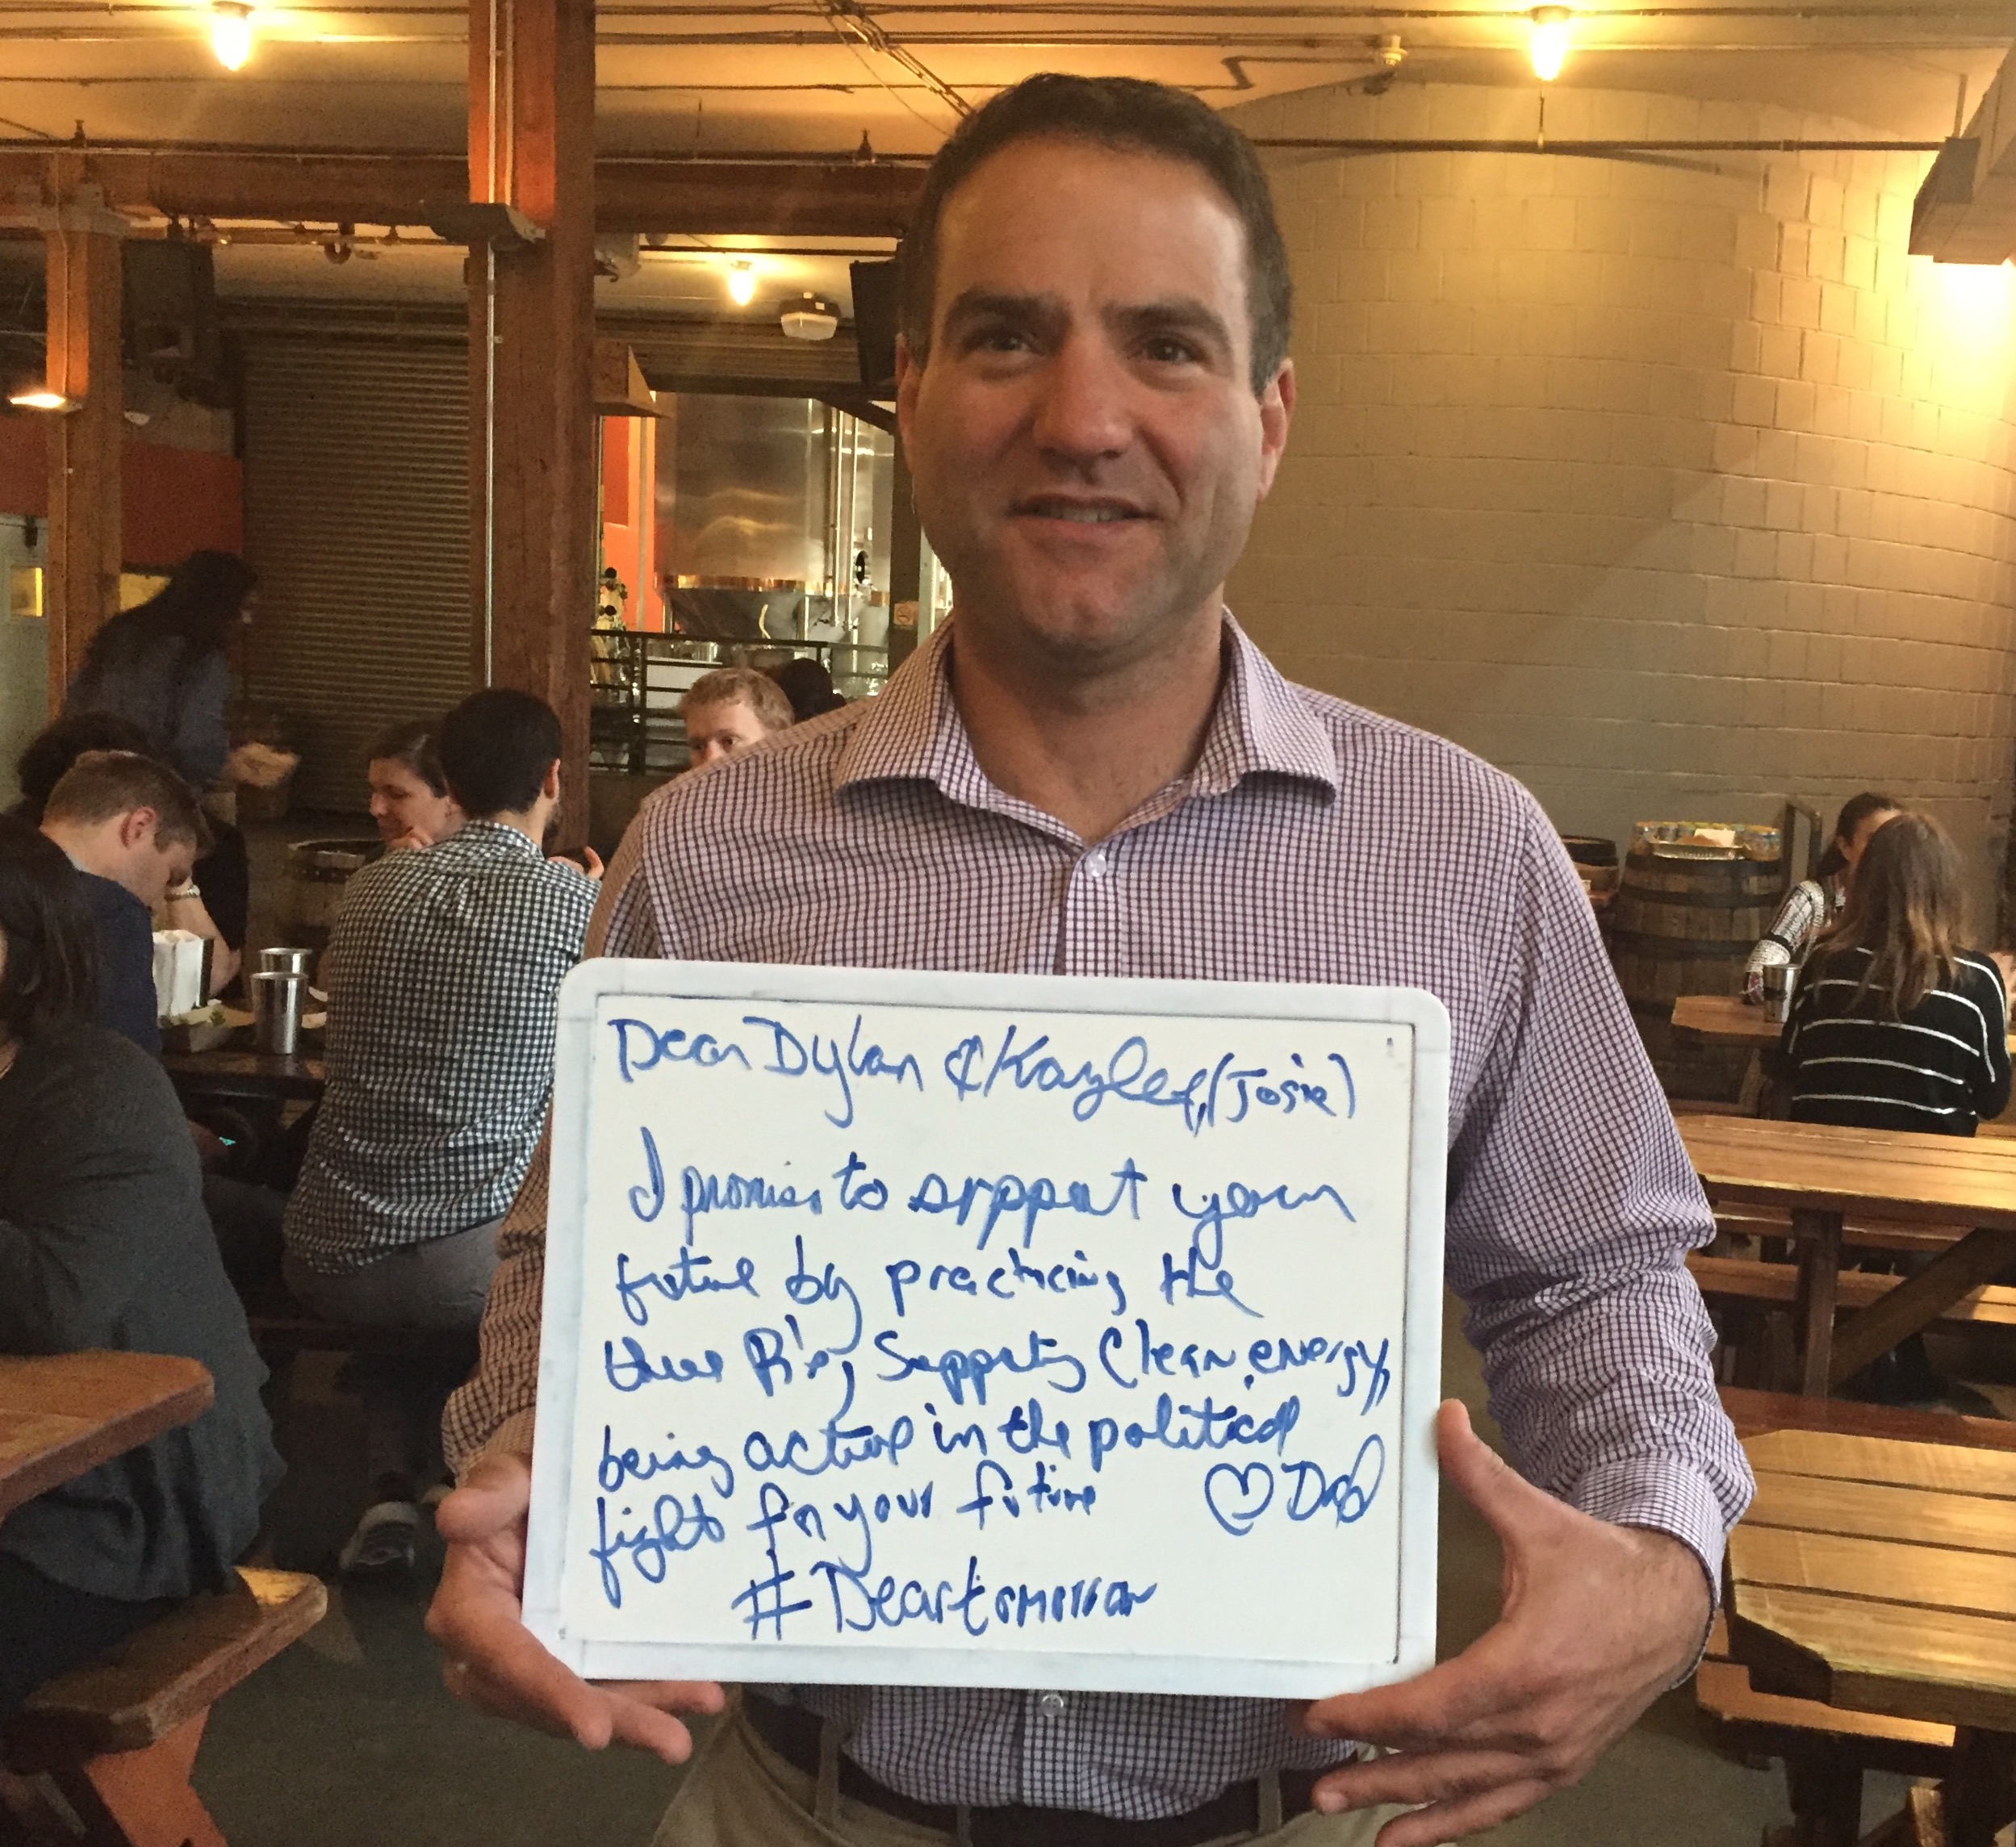 Dear Dylan & Kaylee, (Josie)
I promise to support your
future by practicing the
three R's, Supporting Clean energy,
being active in the political
fights for your future ♡ Dad
#Deartomorrow